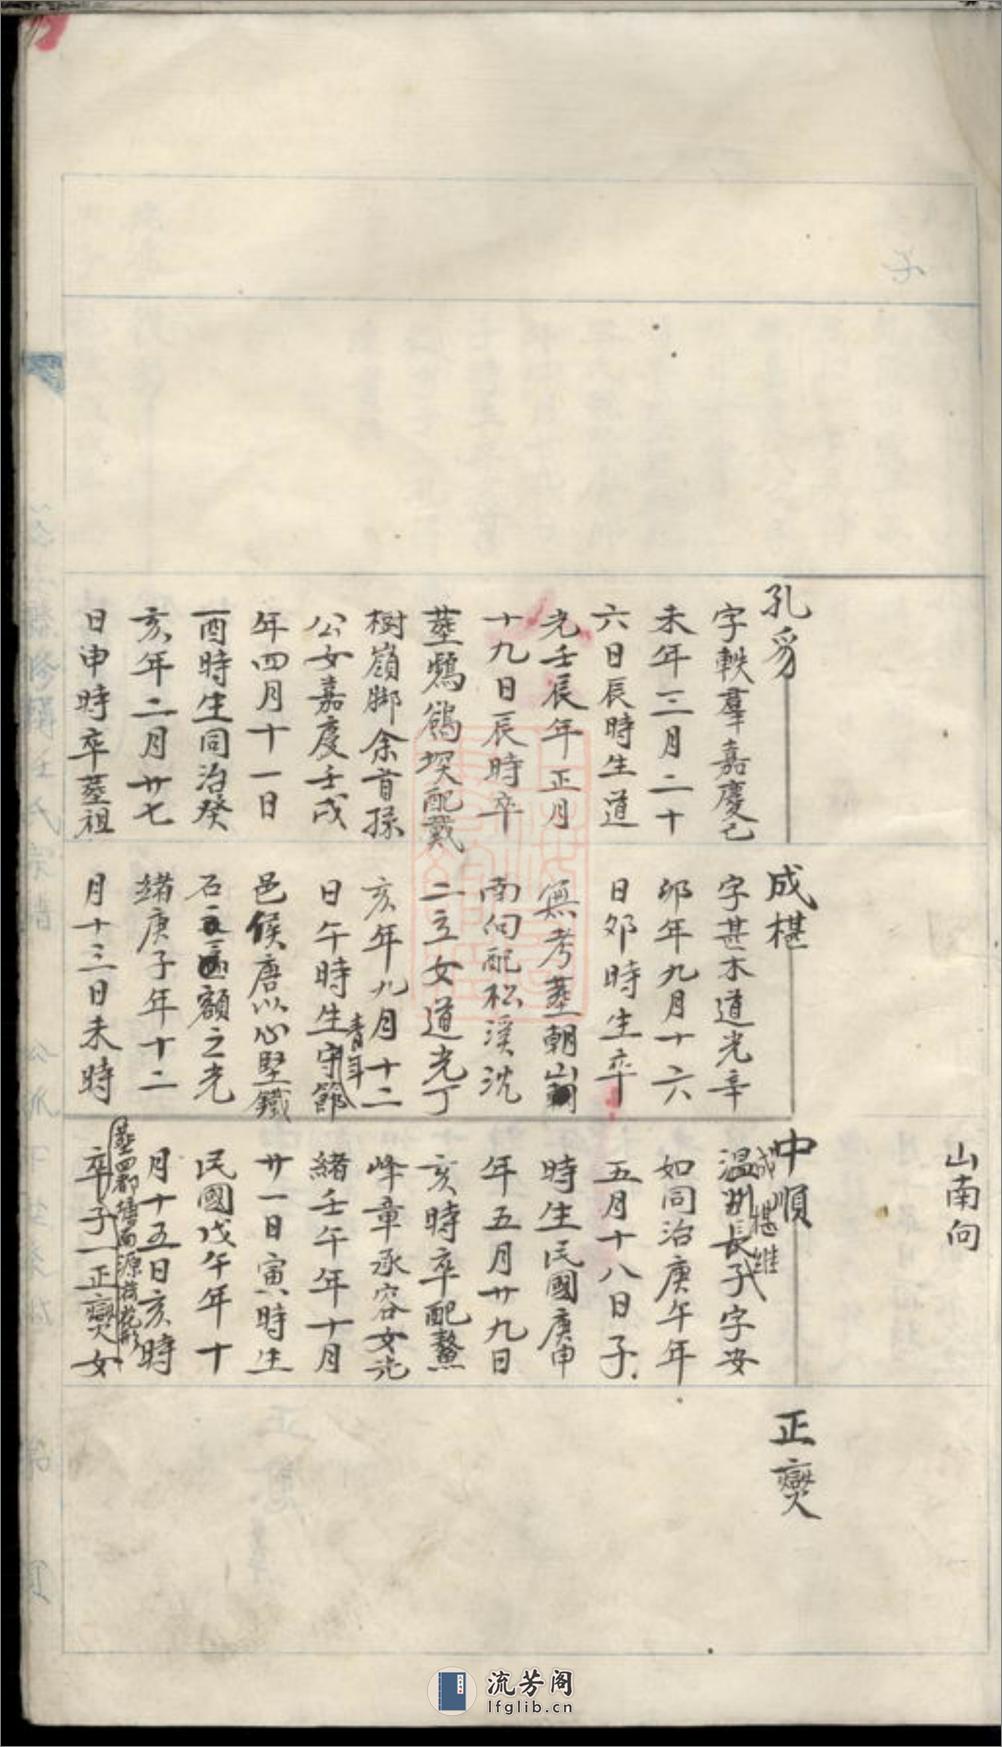 山南向
孔豸
字軼羣嘉慶己
未年三月二十
六日辰時生道
光壬辰年正月
十九日辰時卒
塟鸦鵮堗配戴
樹嶺脚余首孫
公女嘉慶壬戌
年四月十一日
酉時生同治癸
亥年二月廿七
日申時卒塟祖
成椹
字甚木道光辛
卯年九月十六
日卯時生卒
無考塟朝山
南向配松溪沈
二立女道光丁
亥年九月十二
日午時生青年守節
邑侯唐以心堅鐵
石區額之光
緒庚子年十二
月十三日未時
中順
成椹維
溫州長子字安
如同治庚午年
五月十八日子
時生民國庚申
年五月廿九日
亥時卒配鰲
峰章承容女光
緒壬午年十月
廿一日寅時生
民國戊午年十
月十五日亥時
塟四都墻面源荷花形
卒子一正燮女
正燮
流芳阁
lfglib.cn